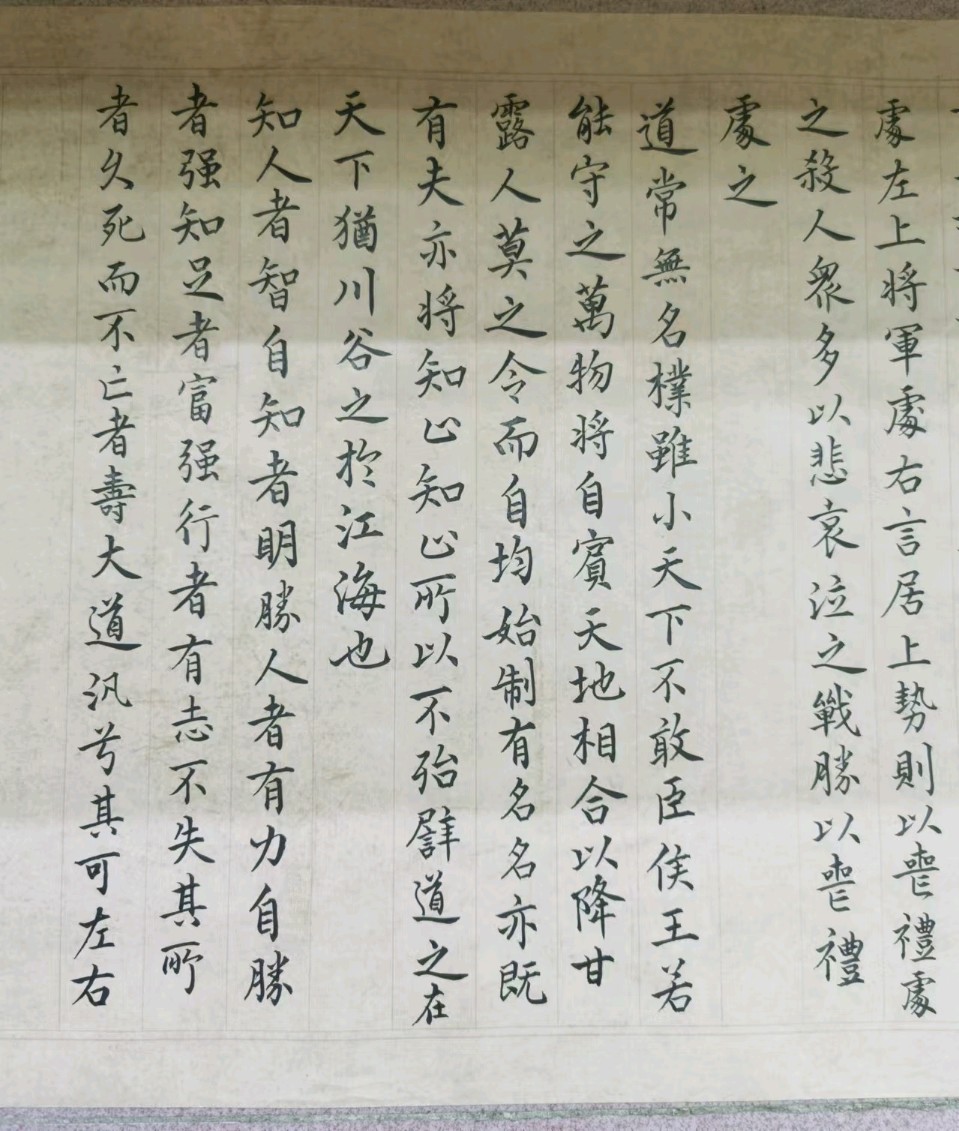 處左上將軍處右言居上勢則以喪禮處
之殺人衆多以悲哀泣之戰勝以喪禮
處之
道常無名樸雖小天下不敢臣侯王若
能守之萬物將自賓天地相合以降甘
露人莫之令而自均始制有名名亦既
有夫亦將知止知止所以不殆譬道之在
天下猶川谷之於江海也
知人者智自知者明勝人者有力自勝
者强知足者富强行者有志不失其所
者久死而不亡者壽大道汎兮其可左右